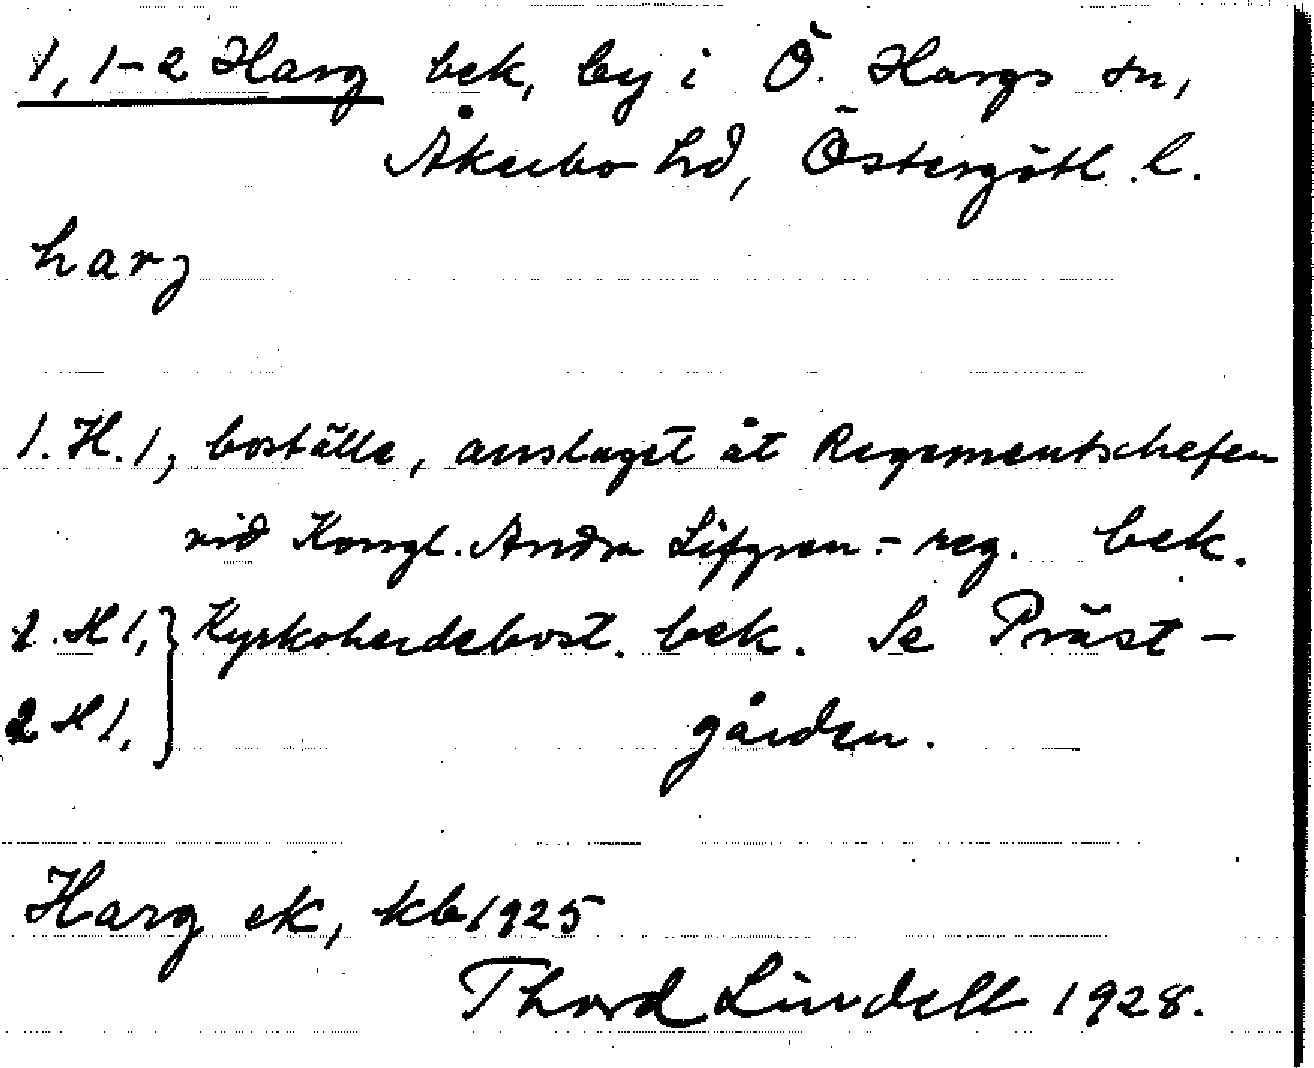 1, 1-2 Harg bek, by i Ö. Hargs sn,
Åkerbo hd, Östergötl. l.
harj
1. H. 1, boställe, anslaget åt Regementschefen
vid Kongl. Andra Lifgren.- reg. bek.
1. H 1, } Kyrkoherdebost. bek. Se Präst-
2 H 1, gården.
Harg ek, kb 1925
Thord Lindell 1928.